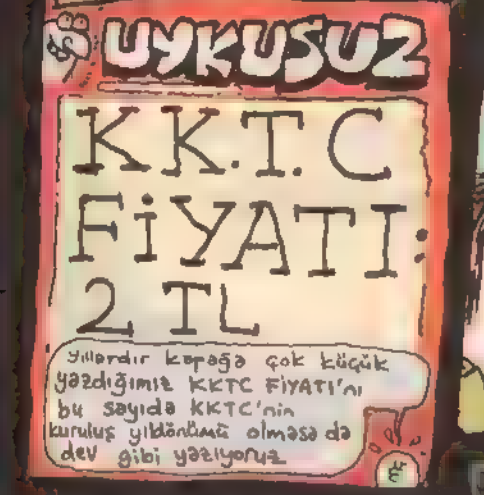 UYKUSUZ
KK.T.C
FİYATI:
2 TL
yıllardır kapağa çok küçük
yazdığımız KKTC FİYATI'nı
bu sayıda KKTC'nin
kuruluş yıldönümü olmasa da
dev gibi yazıyoruz